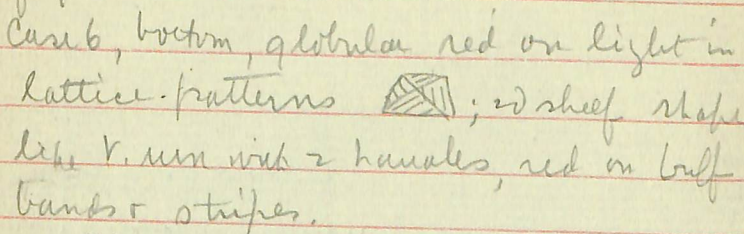 Case 6, bottom, globular red on light in
lattice-patterns ; 2d shelf shape
like V. urn with 2 handles, red on buff
bands + stripes.